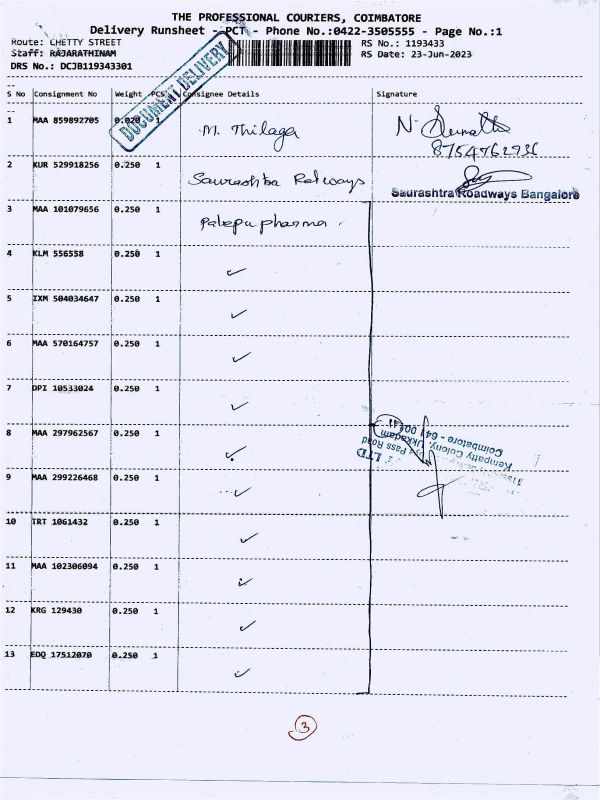 THE PROFESSIONAL COURIERS, COIMBATORE
Delivery Runsheet - PCT - Phone No.:0422-3505555 - Page No.:1
Route: CHETTY STREET RS No.: 1193433
Staff: RAJARATHINAM RS Date: 23-Jun-2023
DRS No.: DCJB119343301
DOCUMENT DELIVERY
S No Consignment No Weight PCS Consignee Details Signature
1 MAA 859892705 0.020 1 M. Thilaga N.
8754762936
2 KUR 529918256 0.250 1 Saurashtra Railways
Saurashtra Roadways Bangalore
3 MAA 101079656 0.250 1 Palepu pharma.
4 KLM 556558 0.250 1 ✓
5 IXM 504034647 0.250 1 ✓
6 MAA 570164757 0.250 1 ✓
7 DPI 10533024 0.250 1 ✓
8 MAA 297962567 0.250 1 ✓
LTD
Pass Road
Kempatty Colony, Ukkadam
Coimbatore - 641 001
9 MAA 299226468 0.250 1 ✓
10 TRT 1061432 0.250 1 ✓
11 MAA 102306094 0.250 1 ✓
12 KRG 129430 0.250 1 ✓
13 EDQ 17512070 0.250 1 ✓
3